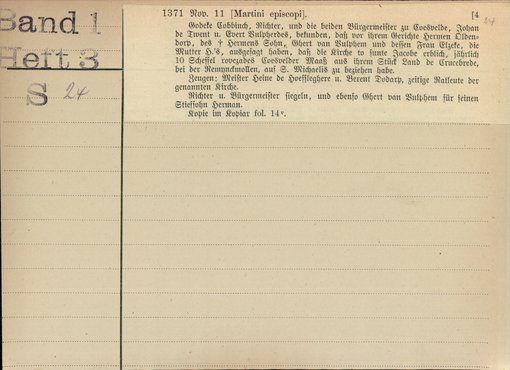 Band 1
Heft 3
S 24
1371 Nov. 11 [Martini episcopi]. [4
24
Godeke Cobbinck, Richter, und die beiden Bürgermeister zu Coesvelde, Johan
de Twent u. Evert Vulpherdes, bekunden, daß vor ihrem Gerichte Hermen Olden-
dorp, des † Hermens Sohn, Ghert van Vulphem und dessen Frau Elzeke, die
Mutter H.'s, ausgesagt haben, daß die Kirche to sunte Jacobe erblich, jährlich
10 Scheffel rovezades Coesvelder Maaß aus ihrem Stück Land de Crucebrede,
bei der Remynckmollen, auf S. Michaelis zu beziehen habe.
Zeugen: Meister Heine de Hoefsleghere u. Berent Dodarp, zeitige Ratleute der
genannten Kirche.
Richter u. Bürgermeister siegeln, und ebenso Ghert van Vulphem für seinen
Stiefsohn Herman.
Kopie im Kopiar fol. 14v.